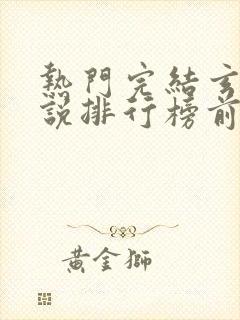 熱門完結玄
說排行榜前
黃金獅